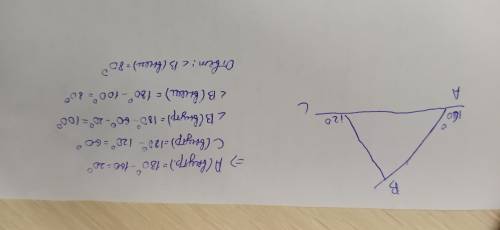 A
C
160°
120°
B
=> A(внутр)=180°-160=20°
C(внутр)=180°-120°=60°
∠B(внутр)=180°-60°-20°=100°
∠B(внеш)=180°-100°=80°
Ответ: ∠B(внеш)=80°